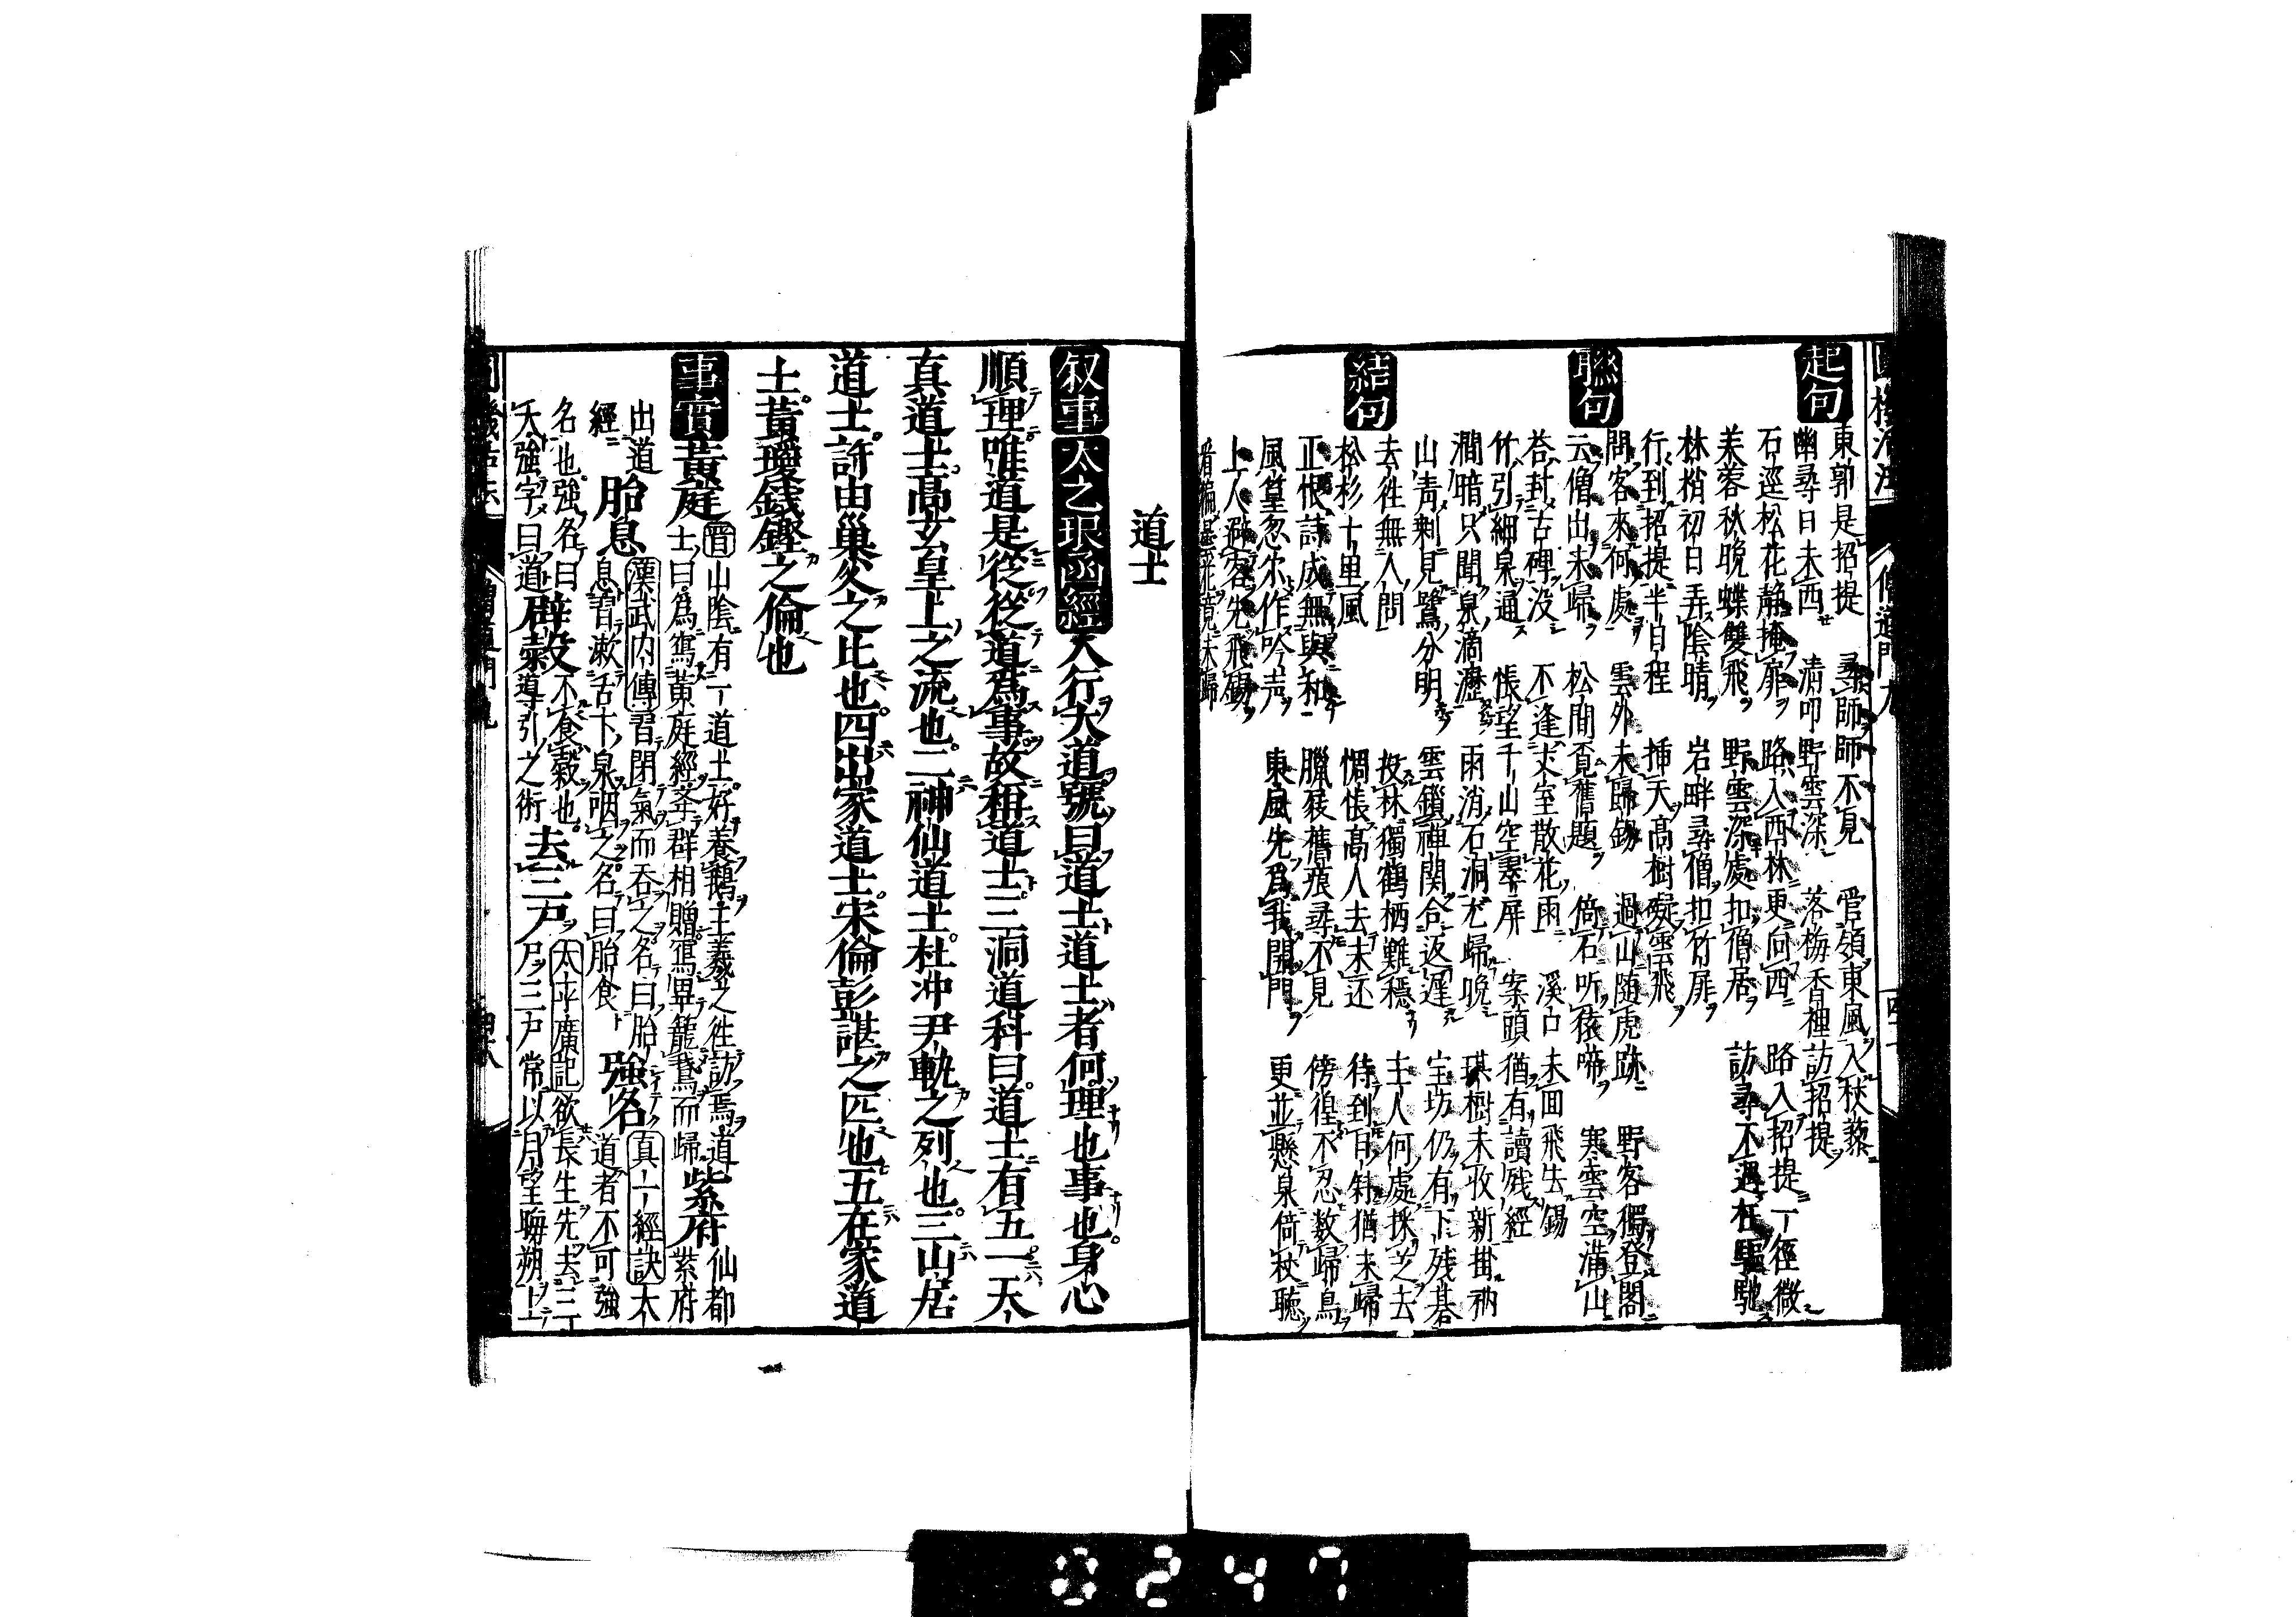 起句
東郭是招提　尋師師不見　管領東風入秋藜
幽尋日未西　清叩野雲深　落梅香裡訪招提
石逕松花静掩扉　路入西林更向西　路入招提一径微
芙蓉秋晩蝶雙飛　野雲深處扣僧居　訪尋不遇枉驅馳
林梢初日弄陰晴　岩畔尋僧扣竹扉
行到招提半日程　挿天高樹礙雲飛
聯句
問客來何處　雲外未歸錫　過山随虎跡　野客獨登閣
云僧出未歸　松間覔舊題　倚石听猿啼　寒雲空満山
苔封古碑没　不逢丈室散花雨　溪口未回飛去錫
竹引細泉通　悵望千山空翠屏　案頭猶有讀残經
澗暗只聞泉滴瀝　雨消石洞尤歸晩　琪樹未收新掛衲
山青剰見鷺分明　雲鎖禅関合返遲　宝坊仍有下残碁
結句
去徃無人問　抜林獨鶴栖難穩　主人何處採芝去
松杉十里風　惆悵高人去未还　待到日斜猶未歸
正恨詩成無與和　臘屐舊痕尋不見　傍徨不忍数歸鳥
風篁忽尓作吟声　東風先爲我開門　更並懸泉倚秋聴
上人避客先飛錫
道士
叙事　太之琅函經　人行大道號曰道士道士者何理也事也身心
順理唯道是從從道爲事故称道士三洞道科曰道士有五一天
真道士高玄皇上之流也二神仙道士杜冲尹軌之列也三山居
道士許由巢父之比也四出家道士宋倫彭諶之匹也五在家道
士黄瓊籛鏗之倫也
事實　黄庭　晋山陰有一道士好養鵝王羲之徃訪焉道
士曰爲寫黄庭經挙群相贈寫畢籠鵞而歸　紫府　仙都
紫府
出道
經　胎息　漢武内傳習閉氣而吞之名曰胎
息習漱舌下泉咽之名曰胎食　強名　真一經訣太
道者不可強
名也強名曰　辟穀　不食穀也
天強字曰道　導引之術　去三尸　太平廣記欲長生先去三
尸三尸常以月望晦朔上
僧道門九
四十八
0247